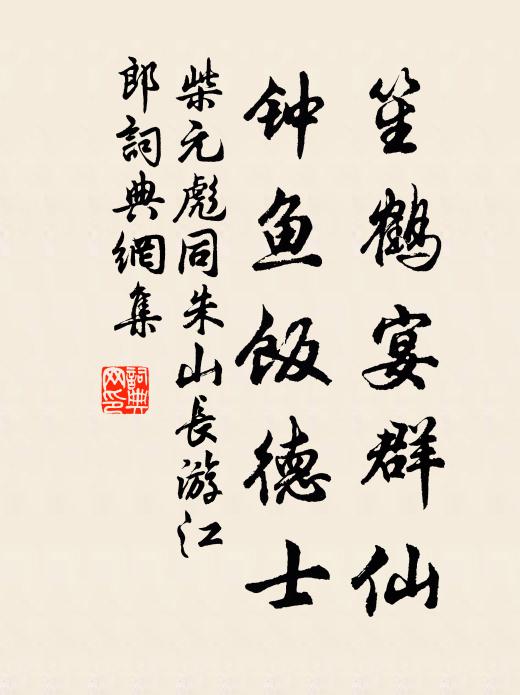 笙鹤宴群仙
钟鱼飯德士
柴元彪同朱山長游江
郎詞典網集
詞典
网印